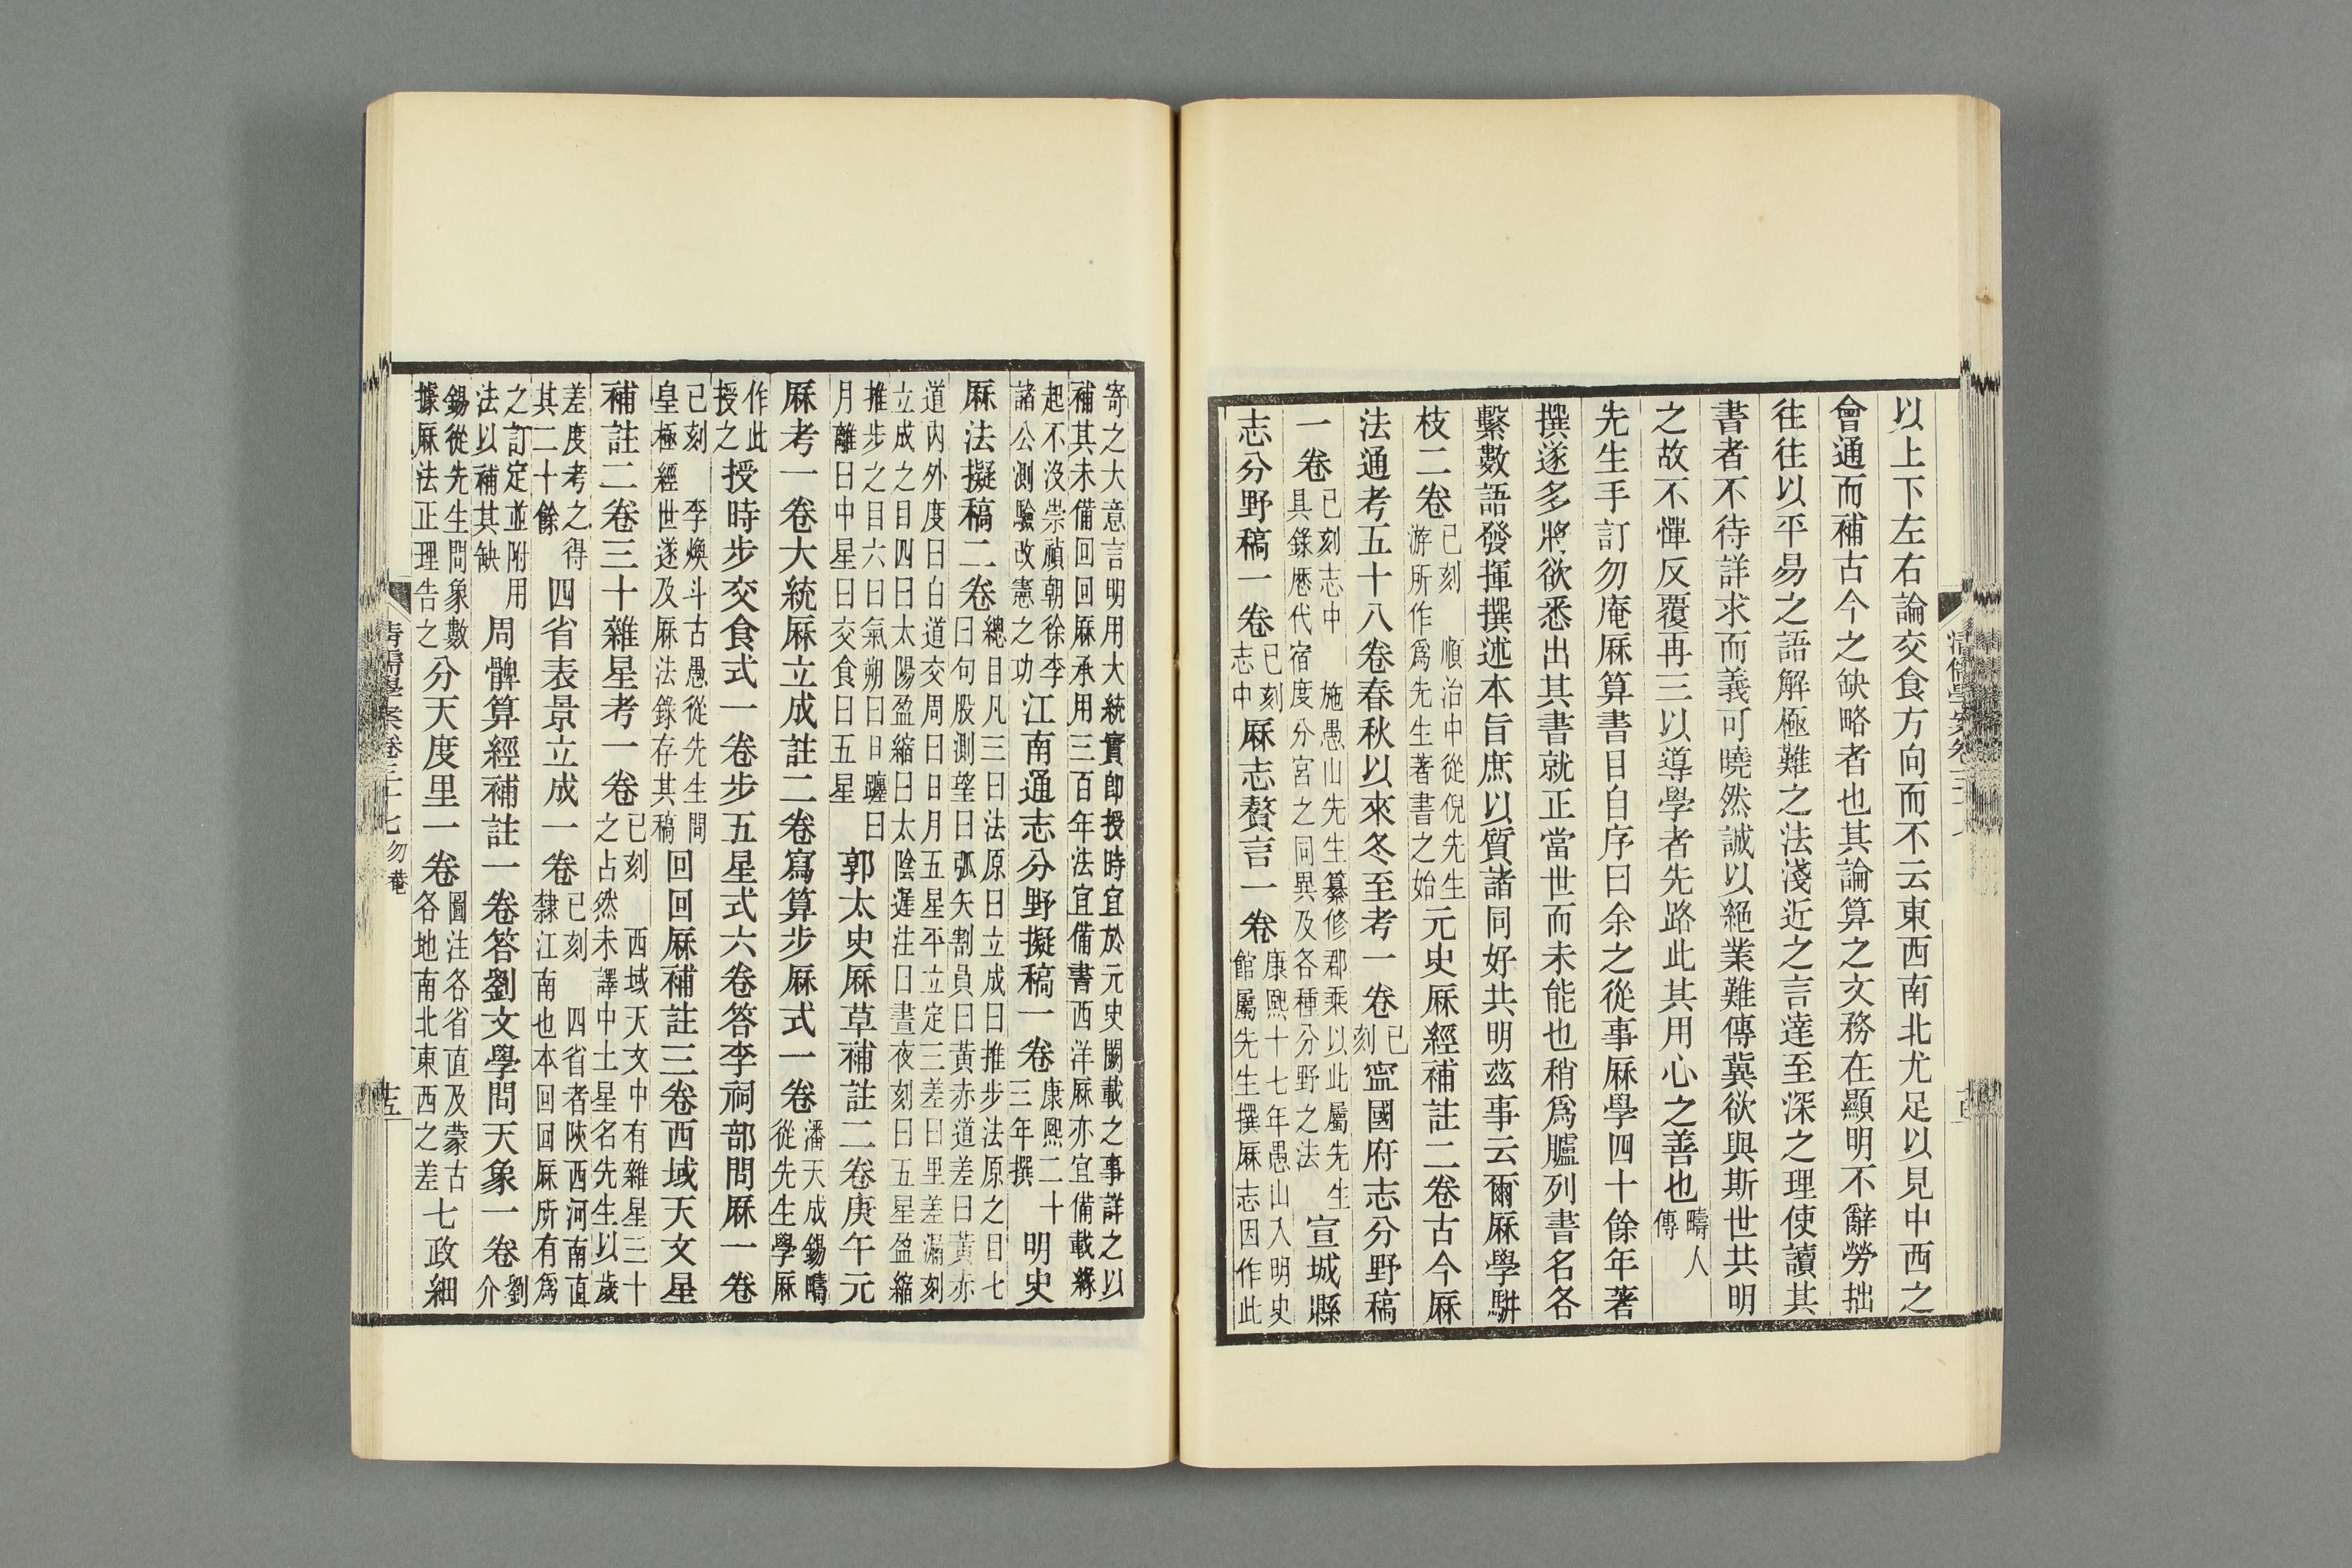 以上下左右論交食方向而不云東西南北尤足以見中西之
會通而補古今之缺略者也其論算之文務在顯明不辭勞拙
往往以平易之語解極難之法淺近之言達至深之理使讀其
書者不待詳求而義可曉然誠以絕業難傳冀欲與斯世共明
之故不憚反覆再三以導學者先路此其用心之善也疇人傳
先生手訂勿庵厤算書目自序曰余之從事厤學四十餘年著
撰遂多將欲悉出其書就正當世而未能也稍爲臚列書名各
繫數語發揮撰述本旨庶以質諸同好共明茲事云爾厤學駢
枝二卷已刻 順治中從倪先生游所作爲先生著書之始元史厤經補註二卷古今厤
法通考五十八卷春秋以來冬至考一卷已刻寍國府志分野稿
一卷已刻志中 施愚山先生纂修郡乘以此屬先生具錄厯代宿度分宮之同異及各種分野之法宣城縣
志分野稿一卷已刻志中厤志贅言一卷康熙十七年愚山入明史館屬先生撰厤志因作此
寄之大意言明用大統實卽授時宜於元史闕載之事詳之以
補其未備回回厤承用三百年法宜備書西洋厤亦宜備載緣
起不沒崇禎朝徐李諸公測驗改憲之功江南通志分野擬稿一卷康熙二十三年撰明史
厤法擬稿二卷總目凡三曰法原曰立成曰推步法原之目七曰句股測望曰弧矢割員曰黃赤道差曰黃赤
道內外度曰白道交周曰日月五星平立定三差曰里差漏刻
立成之目四曰太陽盈縮曰太陰遲疾曰晝夜刻曰五星盈縮
推步之目六曰氣朔曰日躔曰月離曰中星曰交食曰五星郭太史厤草補註二卷庚午元
厤考一卷大統厤立成註二卷寫算步厤式一卷潘天成錫疇從先生學厤
作此授之授時步交食式一卷步五星式六卷答李祠部問厤一卷
已刻 李煥斗古愚從先生問皇極經世遂及厤法錄存其稿回回厤補註三卷西域天文星
補註二卷三十雜星考一卷已刻 西域天文中有雜星三十之占然未譯中土星名先生以歲
差度考之得其二十餘四省表景立成一卷已刻 四省者陝西河南直隸江南也本回回厤所有爲
之訂定並附用法以補其缺周髀算經補註一卷答劉文學問天象一卷劉介
錫從先生問象數據厤法正理告之分天度里一卷圖注各省直及蒙古各地南北東西之差七政細
清儒學案卷三十七 勿菴
十五